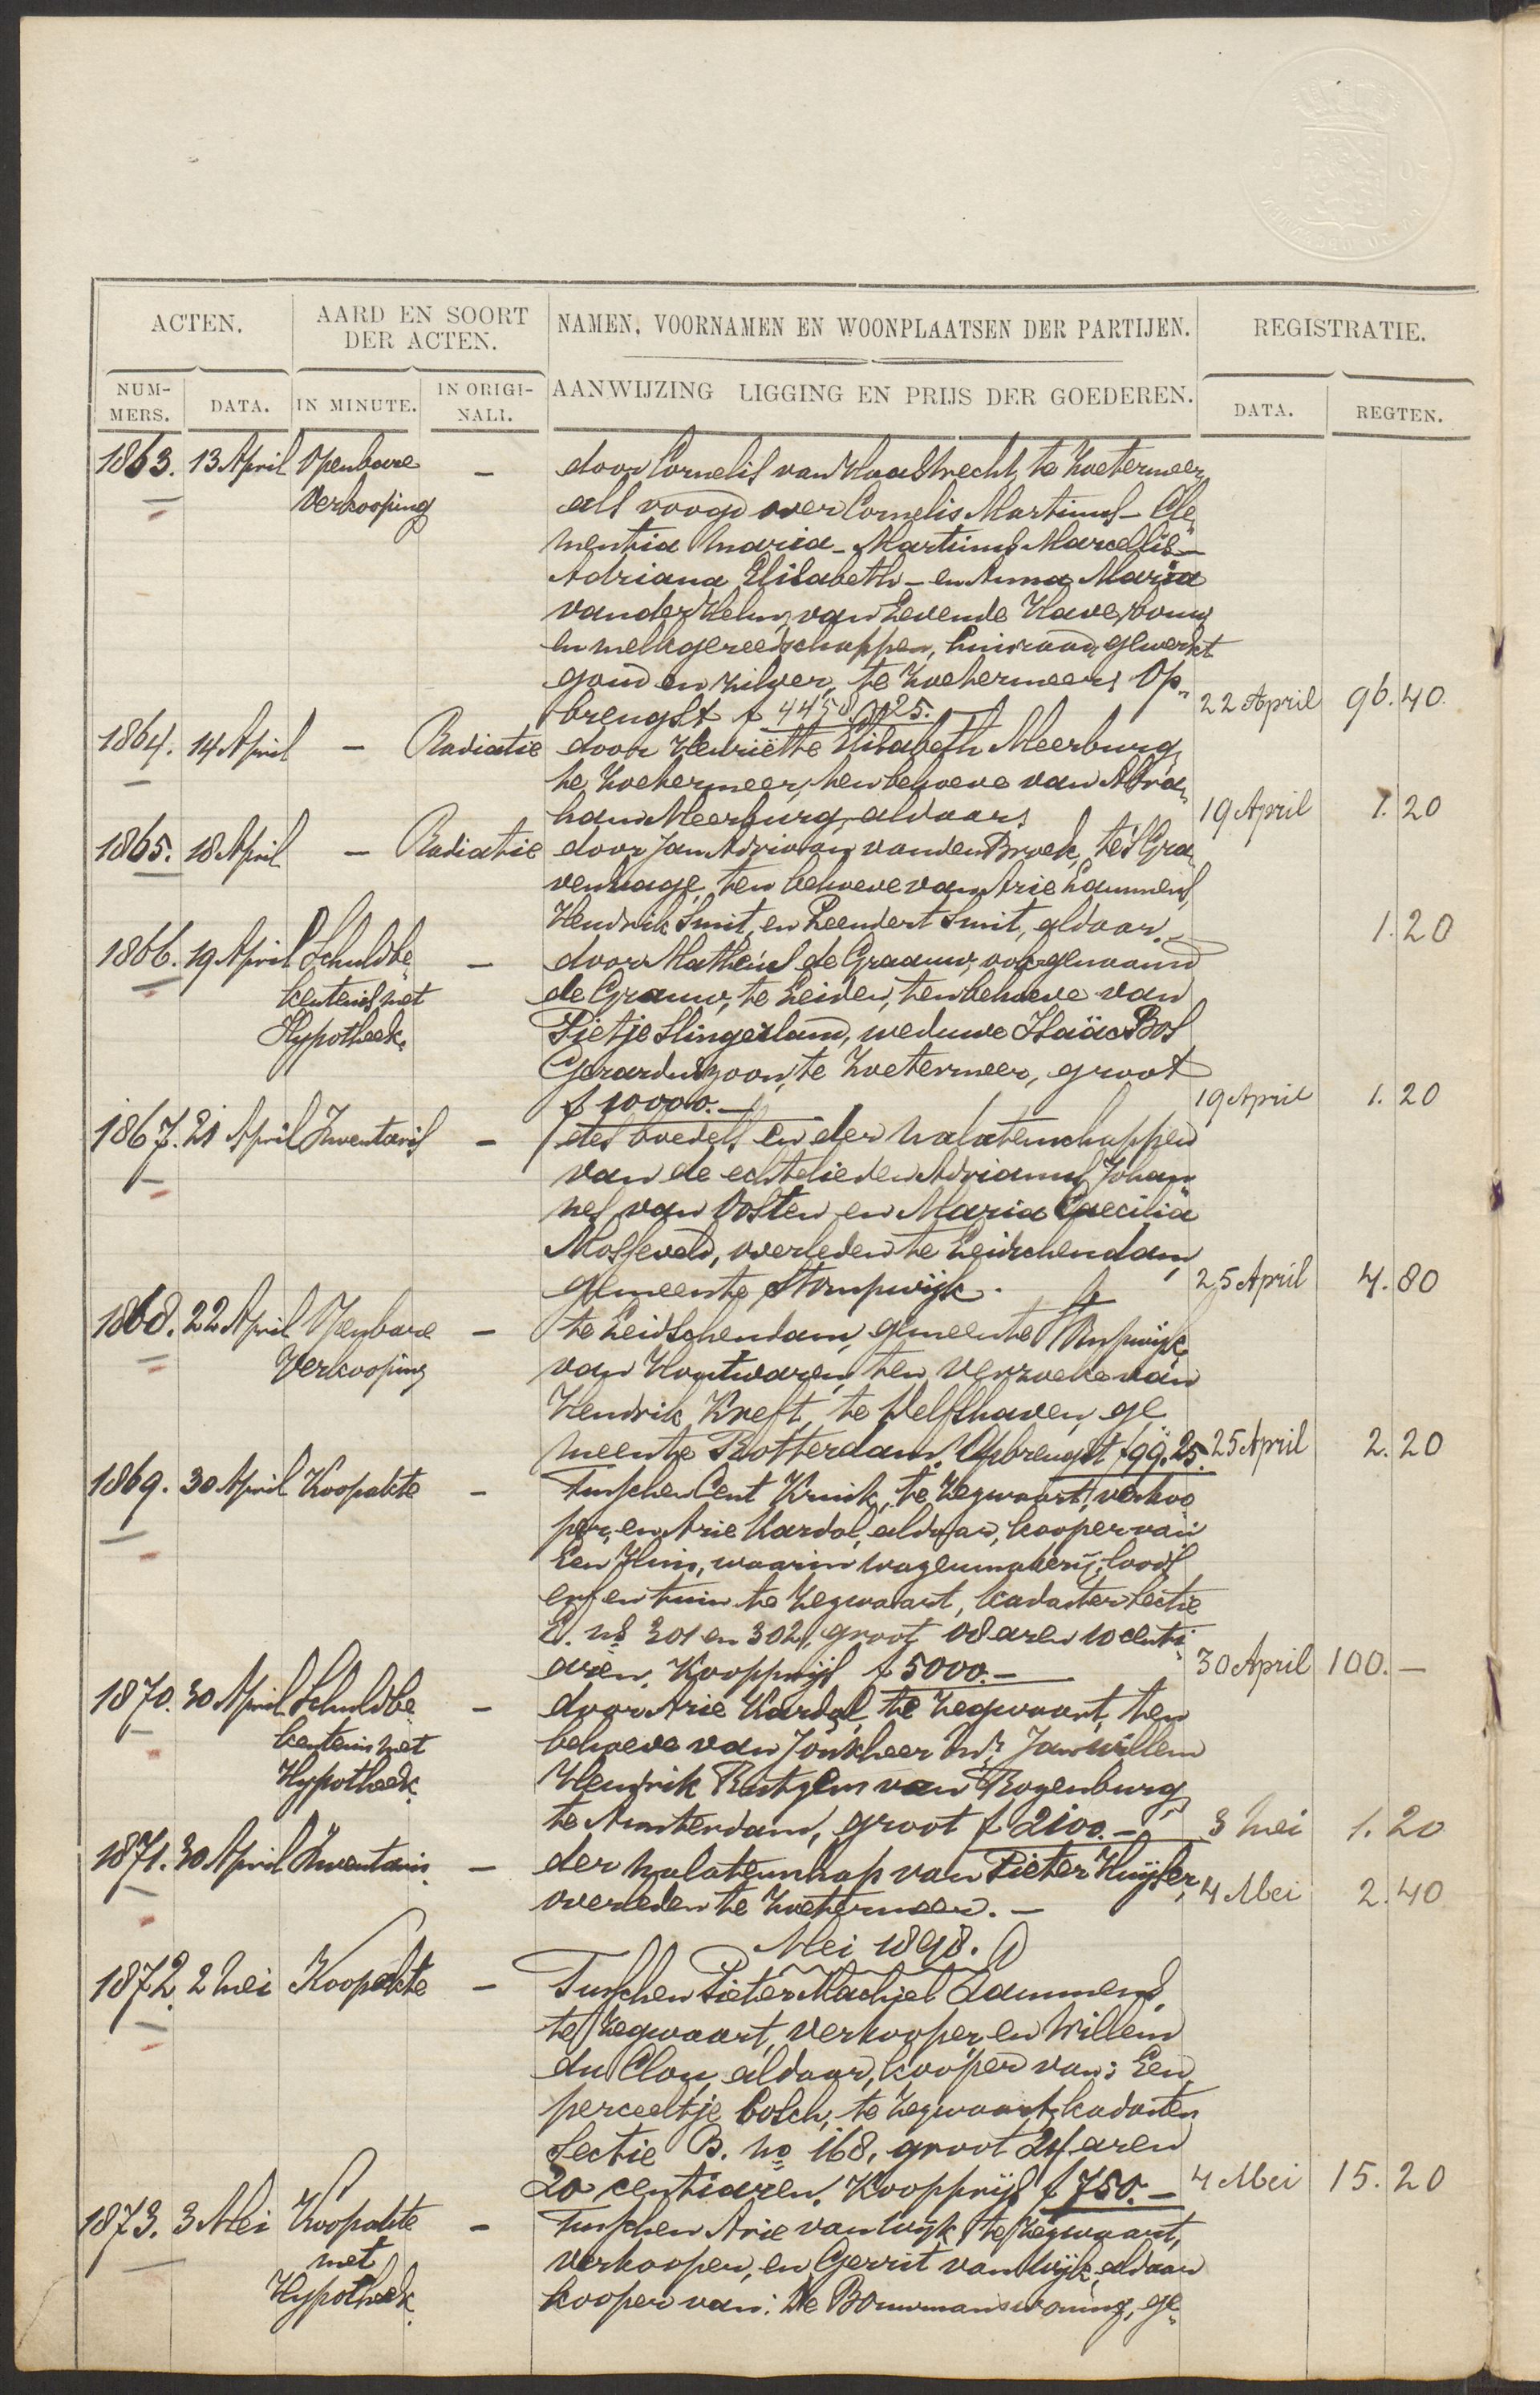 ACTEN.
AARD EN SOORT
DER ACTEN.
NAMEN, VOORNAMEN EN WOONPLAATSEN DER PARTIJEN.
REGISTRATIE.
NUM-
MERS.
DATA.
IN MINUTE.
IN ORIGI-
NALI.
AANWIJZING LIGGING EN PRIJS DER GOEDEREN.
DATA.
REGTEN.
1863. 13 April Openbare - door Cornelis van Haastrecht, te Zoetermeer,
Verkooping als voogd over Cornelis Martinus - Cle„
mentia Maria - Martinus Marcellis -
Adriana Elisabeth - en Anna Maria
van der Helm, van Levende Have, bouw
en melkgereedschappen, huisraad, gewerkt
goud en zilver, te Zoetermeer, Op„
brengst f 4458.25. 22 April 96.40.
1864. 14 April - Radiatie door Henriëtte Elisabeth Meerburg,
te Zoetermeer, ten behoeve van Abra„
ham Meerburg, aldaar. 19 April 1.20
1865. 18 April - Radiatie door Jan Adriaan van den Broek, te 's Gra„
venhage, ten behoeve van Arie Lammens,
Hendrik Smit, en Leendert Smit, aldaar. 1.20
1866. 19 April Schuldbe„ - door Matheus de Graauw, ook genaamd
kentenis met de Grauw, te Leiden, ten behoeve van
Hypotheek. Pietje Slingerland, weduwe Isaäc Bos
Gerarduszoon, te Zoetermeer, groot
f 10000.- 19 April 1.20
1867. 21 April Inventaris - des boedels en der nalatenschappen
van de echtelieden Adrianus Johan„
nes van Oosten en Maria Caecilia
Mosseveld, overleden te Leidschendam,
gemeente Stompwijk. 25 April 4.80
1868. 22 April Openbare - te Leidschendam, gemeente Stompwijk,
Verkooping van Houtwaren, ten verzoeke van
Hendrik Kreft, te Delfshaven, ge„
meente Rotterdam. Opbrengst f 99.25. 25 April 2.20
1869. 30 April Koopakte - Tusschen Cent Kruik, te Zegwaart, verkoo„
per, en Arie Kardol, aldaar, kooper van
Een Huis, waarin wagenmakerij, loods
erf en tuin te Zegwaart, kadaster sectie
C. nos 301 en 302, groot 08 aren 10 centi„
aren. Koopprijs f 5000.- 30 April 100.-
1870. 30 April Schuldbe„ - door Arie Kardol, te Zegwaart, ten
kentenis met behoeve van Jonkheer Mr. Jan Willem
Hypotheek. Hendrik Rutgers van Rozenburg,
te Amsterdam, groot f 2100.- 3 Mei 1.20
1871. 30 April Inventaris. - der nalatenschap van Pieter Huyser,
overleden te Zoetermeer. - 4 Mei 2.40
Mei 1898.
1872. 2 Mei Koopakte - Tusschen Pieter Machiel Lammens,
te Zegwaart, verkooper, en Willem
du Clou, aldaar, kooper van: Een
perceeltje bosch, te Zegwaart, kadaster
Sectie B. no 168, groot 24 aren
20 centiaren. Koopprijs f 750.- 4 Mei 15.20
1873. 3 Mei Koopakte - Tusschen Arie van Wijk, te Zegwaart,
met verkooper, en Gerrit van Wijk, aldaar
Hypotheek. kooper van: De Bouwmanswoning, ge„